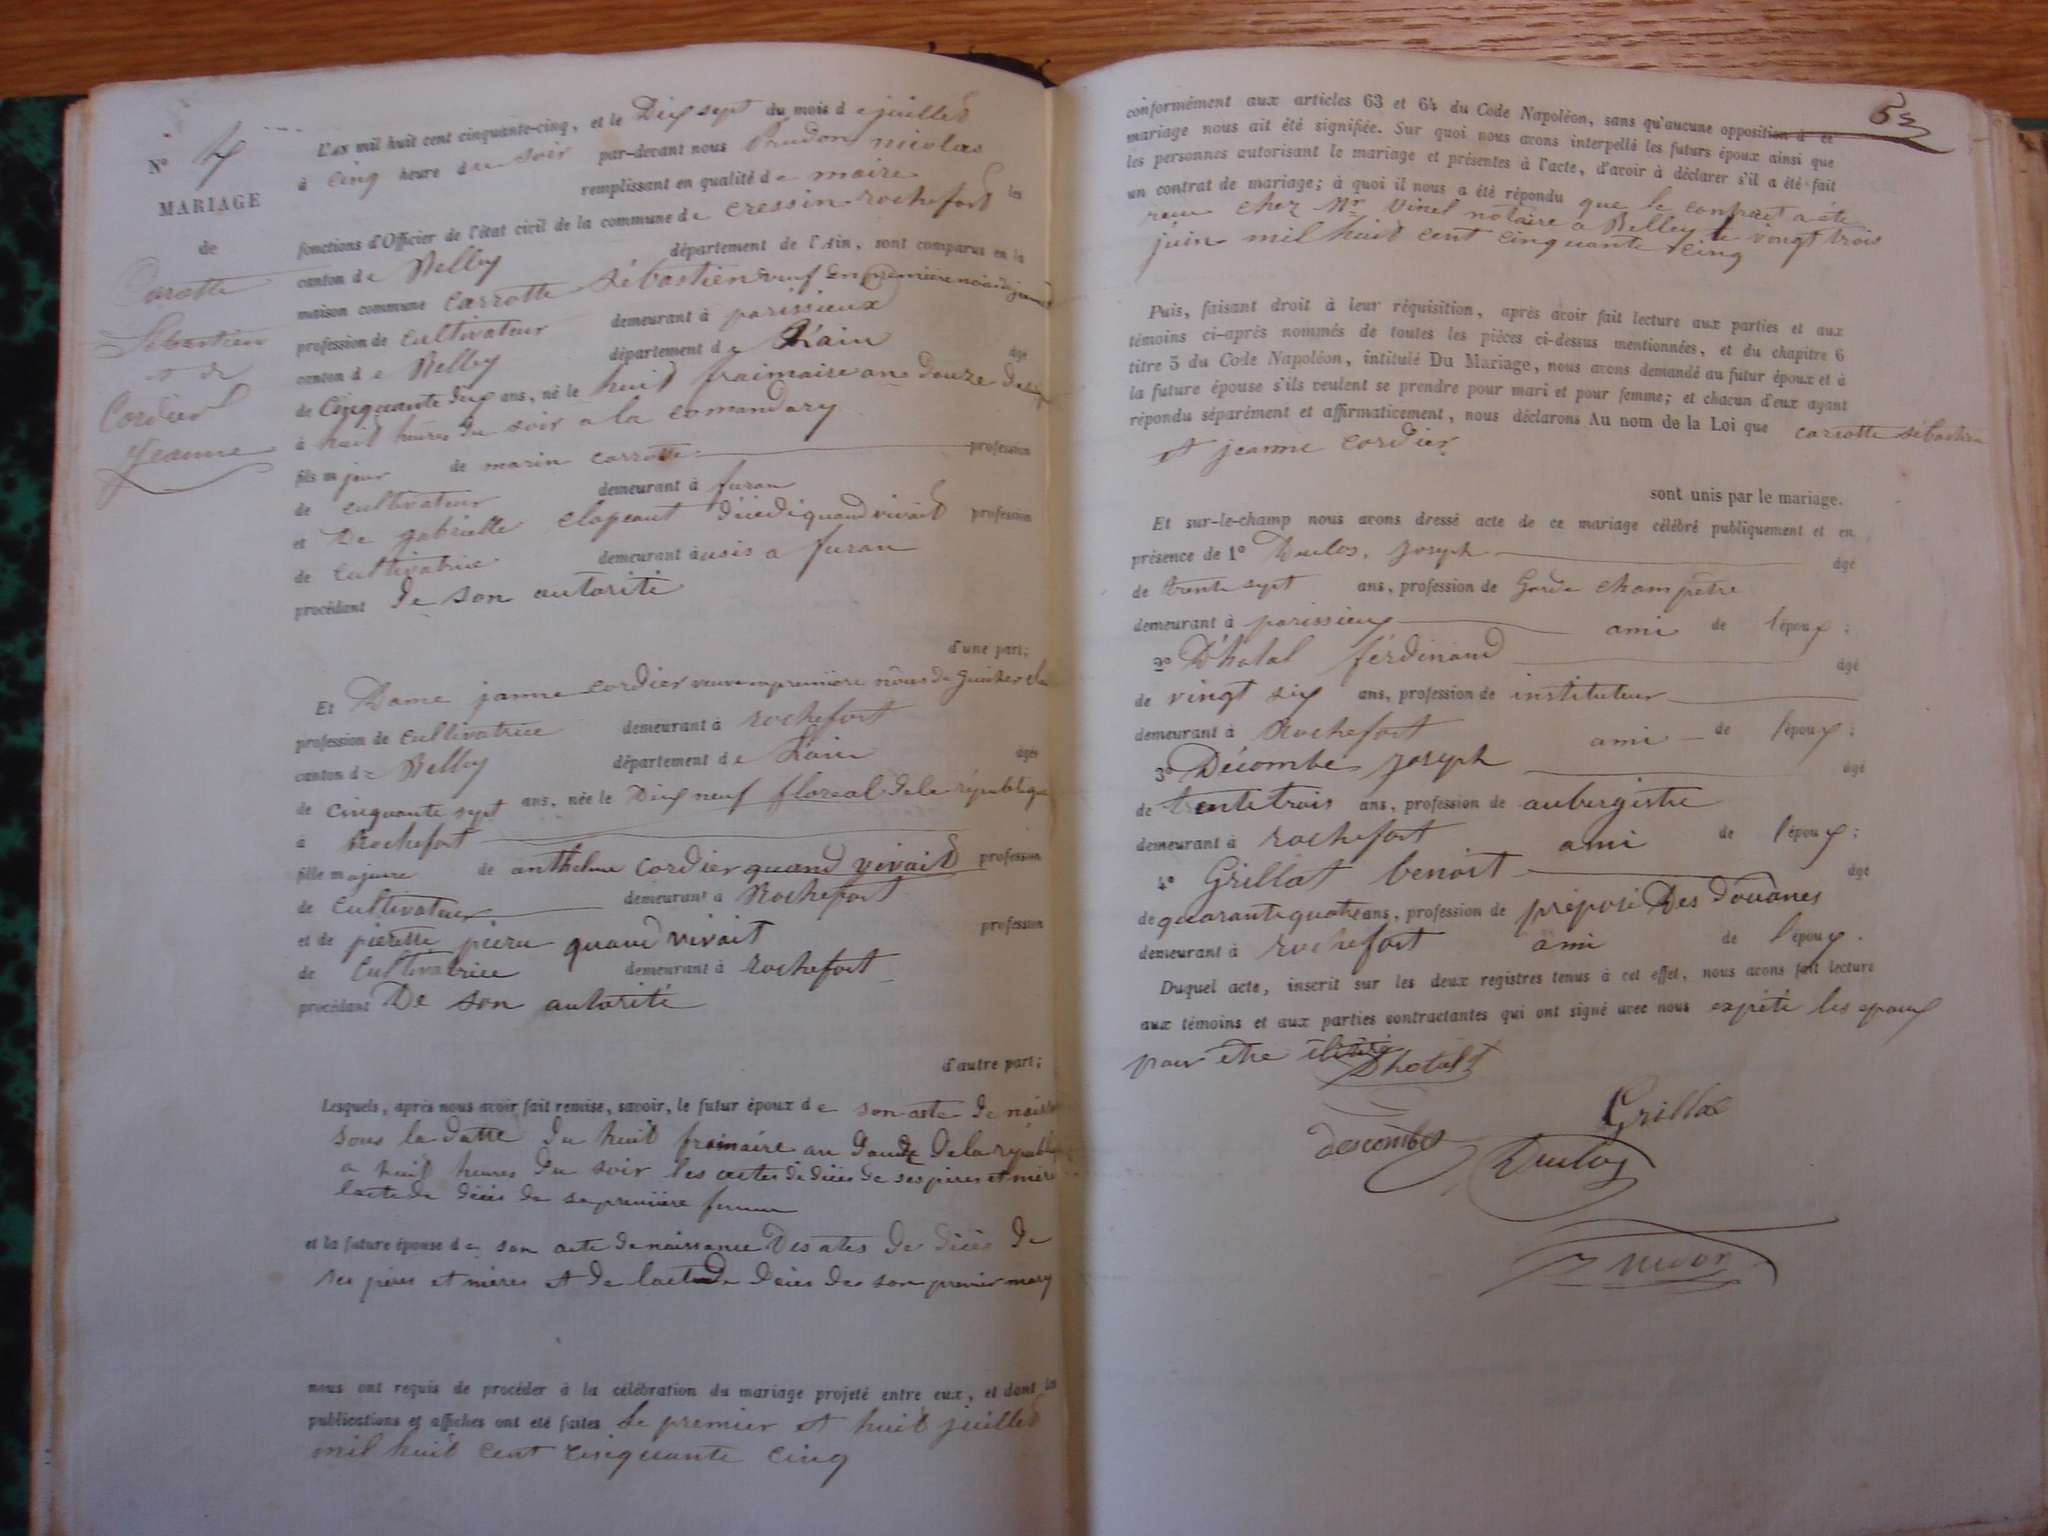 N° 4
MARIAGE
de
Carotte
Sebastien
et de
Cordier
Jeanne
L'AN mil huit cent cinquante-cinq, et le Dix sept du mois de juillet
à cinq heure du soir par-devant nous Prudon nicolas
remplissant en qualité de maire les
fonctions d'Officier de l'état civil de la commune de cressin rochefort
canton de Belley département de l'Ain, sont comparus en la
maison commune Carrotte Sébastien veuf en première noce de jeanne
profession de cultivateur demeurant à parissieux
canton de Belley département de l'ain âgé
de Cinquante dix ans, né le huit fraimaire an douze de la
à huit heures du soir a la comandery
fils majeur de marin carrotte profession
de cultivateur demeurant à furan
et De gabrielle clapeaut décédé quand vivait profession
de cultivatrice demeurant ausis a furan
procédant de son autorité
d'une part;
Et Dame janne cordier veuve en première nôus de
profession de cultivatrice demeurant à rochefort
canton de Belley département de l'ain âgée
de cinquante sept ans, née le Dix neuf floreal de la république
à Rochefort
fille majeure de anthelme cordier quand vivait profession
de cultivateur demeurant à Rochefort
et de pierette pieru quand vivait profession
de cultivatrice demeurant à rochefort
procédant De son autorité
d'autre part;
Lesquels, après nous avoir fait remise, savoir, le futur époux de son acte de naiss
sous la datte du huit fraimaire an douze de la républ
a huit heures du soir les actes de décés de ses péres et mére
lacte de décés de sa première femme
et la future épouse de son acte de naissance Des ates de décés de
ses péres et méres et de lacte de décés de son premier mary
nous ont requis de procéder à la célébration du mariage projeté entre eux, et dont les
publications et affiches ont été faites le premier et huit juillet
mil huit cent cinquante cinq
53
conformément aux articles 63 et 64 du Code Napoléon, sans qu'aucune opposition à ce
mariage nous ait été signifiée. Sur quoi nous avons interpellé les futurs époux ainsi que
les personnes autorisant le mariage et présentes à l'acte, d'avoir à déclarer s'il a été fait
un contrat de mariage; à quoi il nous a été répondu que le contract a été
reçu chez Mr Vinel nôtaire a Belley le vingt trois
juin mil huit cent cinquante cinq
Puis, faisant droit à leur réquisition, après avoir fait lecture aux parties et aux
témoins ci-après nommés de toutes les pièces ci-dessus mentionnées, et du chapitre 6
titre 5 du Code Napoléon, intitulé Du Mariage, nous avons demandé au futur époux et à
la future épouse s'ils veulent se prendre pour mari et pour femme; et chacun d'eux ayant
répondu séparément et affirmativement, nous déclarons Au nom de la Loi que carrotte sébastien
et jeanne cordier
sont unis par le mariage.
Et sur-le-champ nous avons dressé acte de ce mariage célébré publiquement et en
présence de 1° Duclos, joseph âgé
de trente sept ans, profession de Garde champêtre
demeurant à parissieux ami de l'époux;
2° D'hotal ferdinand âgé
de vingt six ans, profession de instituteur
demeurant à Rochefort ami de l'époux;
3° Décombe joseph âgé
de trente trois ans, profession de aubergistre
demeurant à rochefort ami de l'époux;
4° Grillat benoit âgé
de quarante quatre ans, profession de préposé Des Douànes
demeurant à rochefort ami de l'époux.
Duquel acte, inscrit sur les deux registres tenus à cet effet, nous avons fait lecture
aux témoins et aux parties contractantes qui ont signé avec nous expété les epoux
pour etre
Dhotal
Grillat
descombes
Duclos
Prudon